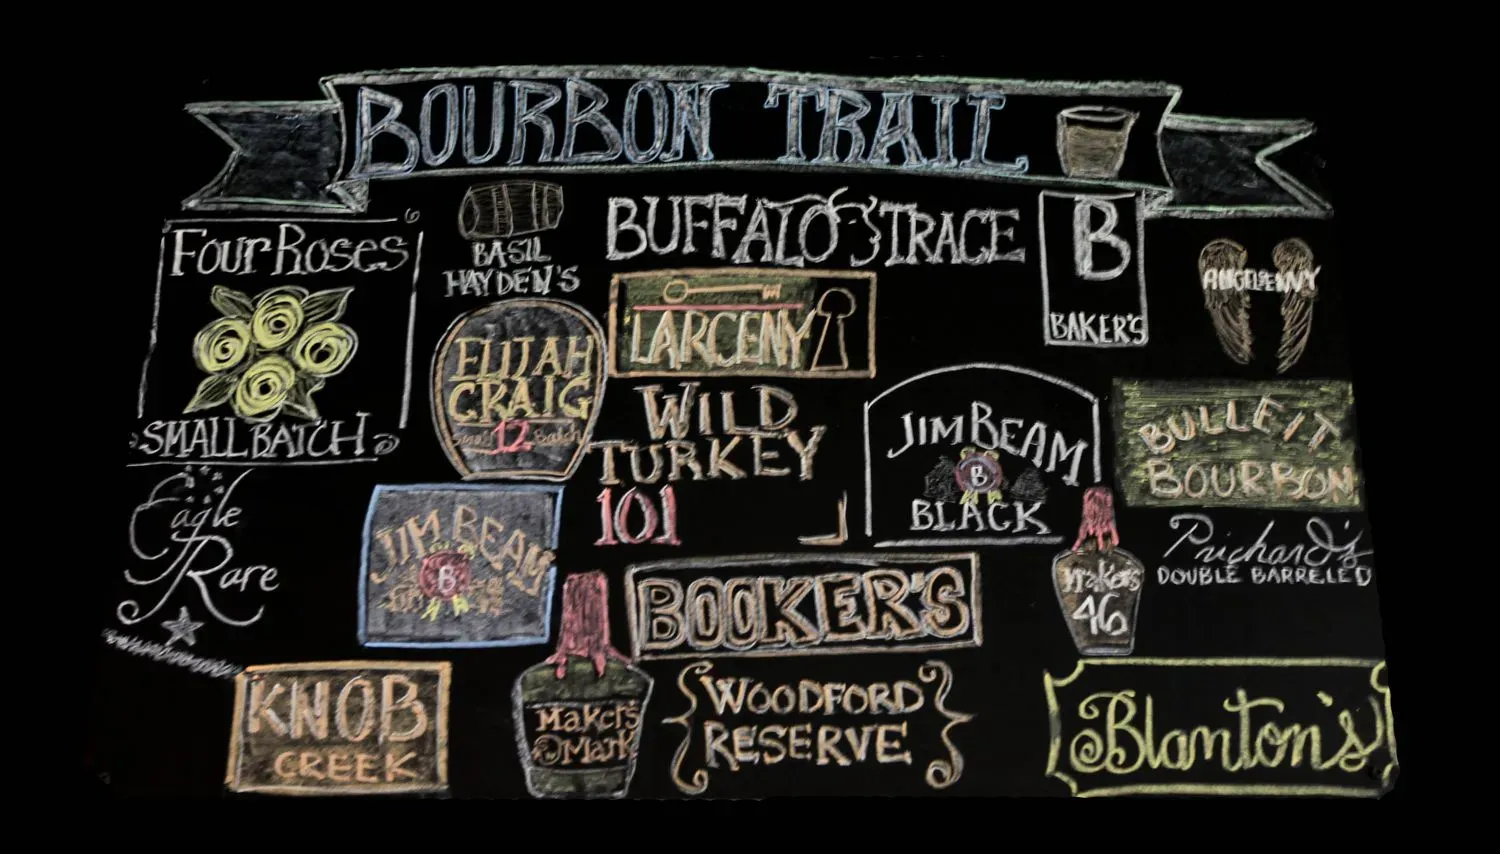 BOURBON TRAIL
Four Roses
SMALL BATCH
BASIL
HAYDEN'S
BUFFALO TRACE
B
BAKER'S
ANGEL'S ENVY
ELIJAH
CRAIG
Small 12 Batch
LARCENY
WILD
TURKEY
101
JIM BEAM
B
BLACK
BULLEIT
BOURBON
Eagle
Rare
JIM BEAM
B
BOOKER'S
Makers
46
Prichard's
DOUBLE BARRELED
KNOB
CREEK
Makers
Mark
WOODFORD
RESERVE
Blanton's